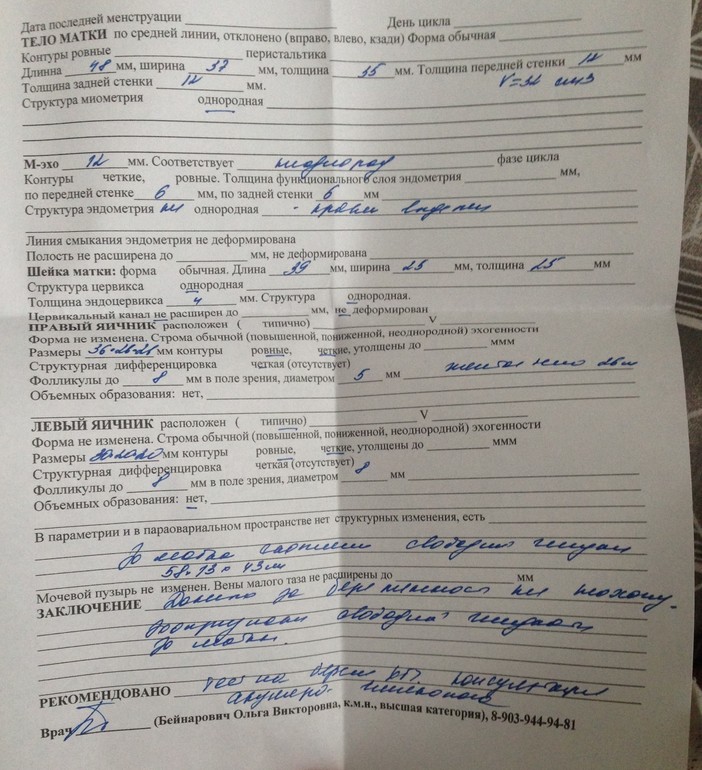 Дата последней менструации День цикла
ТЕЛО МАТКИ по средней линии, отклонено (вправо, влево, кзади) Форма обычная
Контуры ровные перистальтика
Длинна 48 мм, ширина 37 мм, толщина 35 мм. Толщина передней стенки 12 мм
Толщина задней стенки 12 мм. V=32 см3
Структура миометрия однородная
М-эхо 12 мм. Соответствует фазе цикла
Контуры четкие, ровные. Толщина функционального слоя эндометрия мм,
по передней стенке 6 мм, по задней стенки 6 мм
Структура эндометрия не однородная -
Линия смыкания эндометрия не деформирована
Полость не расширена до мм, не деформирована
Шейка матки: форма обычная. Длина 39 мм, ширина 25 мм, толщина 25 мм
Структура цервикса однородная
Толщина эндоцервикса 4 мм. Структура однородная.
Цервикальный канал не расширен до мм, не деформирован
ПРАВЫЙ ЯИЧНИК расположен ( типично) V
Форма не изменена. Строма обычной (повышенной, пониженной, неоднородной) эхогенности
Размеры мм контуры ровные, четкие, утолщены до ммм
Структурная дифференцировка четкая (отсутствует) желтое тело
Фолликулы до 8 мм в поле зрения, диаметром 5 мм
Объемных образования: нет,
ЛЕВЫЙ ЯИЧНИК расположен ( типично) V
Форма не изменена. Строма обычной (повышенной, пониженной, неоднородной) эхогенности
Размеры мм контуры ровные, четкие, утолщены до ммм
Структурная дифференцировка четкая (отсутствует)
Фолликулы до 8 мм в поле зрения, диаметром 8 мм
Объемных образования: нет,
В параметрии и в параовариальном пространстве нет структурных изменения, есть
свободная
43 мм
Мочевой пузырь не изменен. Вены малого таза не расширены до мм
ЗАКЛЮЧЕНИЕ Данных за беременность не нахожу.
свободной жидкости
РЕКОМЕНДОВАНО Тест на консультация
акушера-гинеколога
Врач (Бейнарович Ольга Викторовна, к.м.н., высшая категория), 8-903-944-94-81